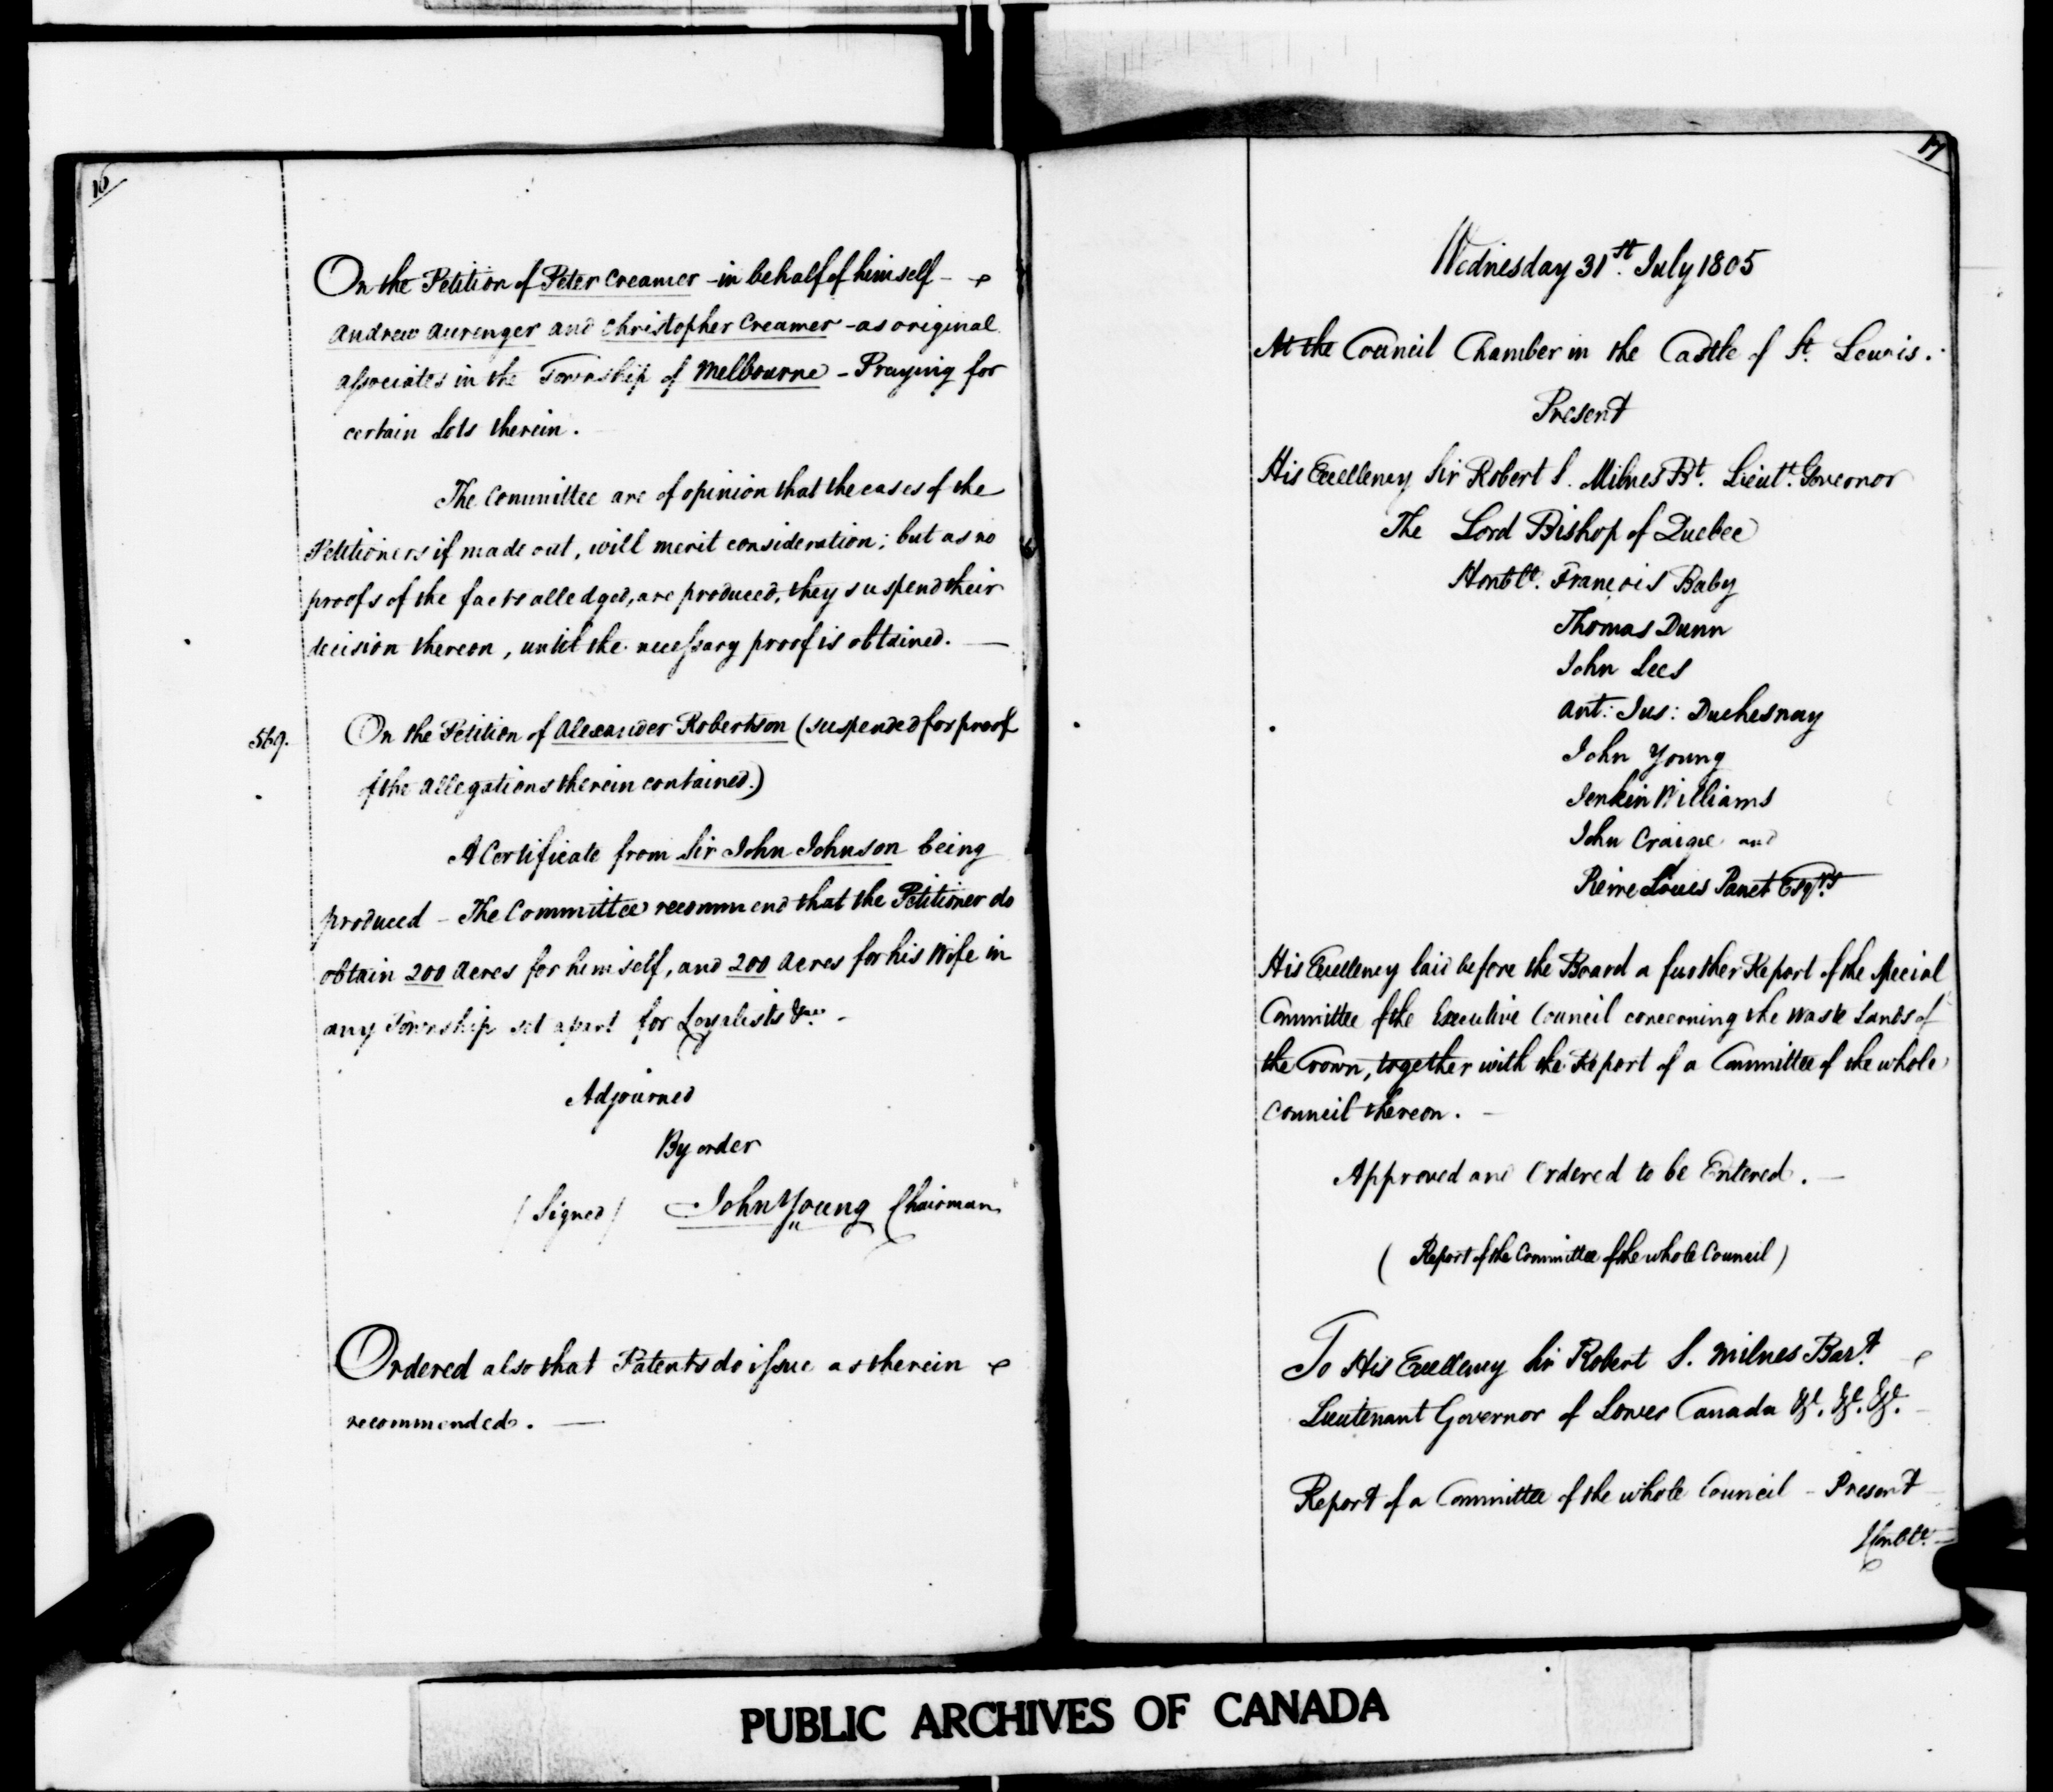 16
On the Petition of Peter Creamer - in behalf of himself -
Andrew Aurenger and Christopher Creamer - as original
associates in the Township of Melbourne - Praying for
certain Lots therein.
The Committee are of opinion that the cases of the
Petitioners if made out, will merit consideration; but as no
proofs of the facts alledged, are produced, they suspend their
decision thereon, until the necessary proof is obtained. —
569.
On the Petition of Alexander Robertson (suspended for proof
of the allegations therein contained.)
A Certificate from Sir John Johnson being
produced - The Committee recommend that the Petitioner do
obtain 200 Acres for himself, and 200 Acres for his Wife in
any Township set apart for Loyalists &ca. -
Adjourned
By order
/Signed/ John Young Chairman
Ordered also that Patents do issue as therein
recommended. —
17
Wednesday 31st. July 1805
At the Council Chamber in the Castle of St. Lewis.
Present
His Excellency Sir Robert S. Milnes Bt. Lieut. Governor
The Lord Bishop of Quebec
Honble. François Baby
Thomas Dunn
John Lees
Ant: Jus: Duchesnay
John Young
Jenkin Williams
John Craigie and
Peirre Louis Panet Esqrs
His Excellency laid before the Board a further Report of the Special
Committee of the Executive Council concerning the waste Lands of
the Crown, together with the Report of a Committee of the whole
Council thereon. -
Approved and Ordered to be Entered. —
( Report of the Committee of the whole Council )
To His Excellency Sir Robert S. Milnes Bart.
Lieutenant Governor of Lower Canada &c. &c. &c.
Report of a Committee of the whole Council - Present
Honble.
PUBLIC ARCHIVES OF CANADA